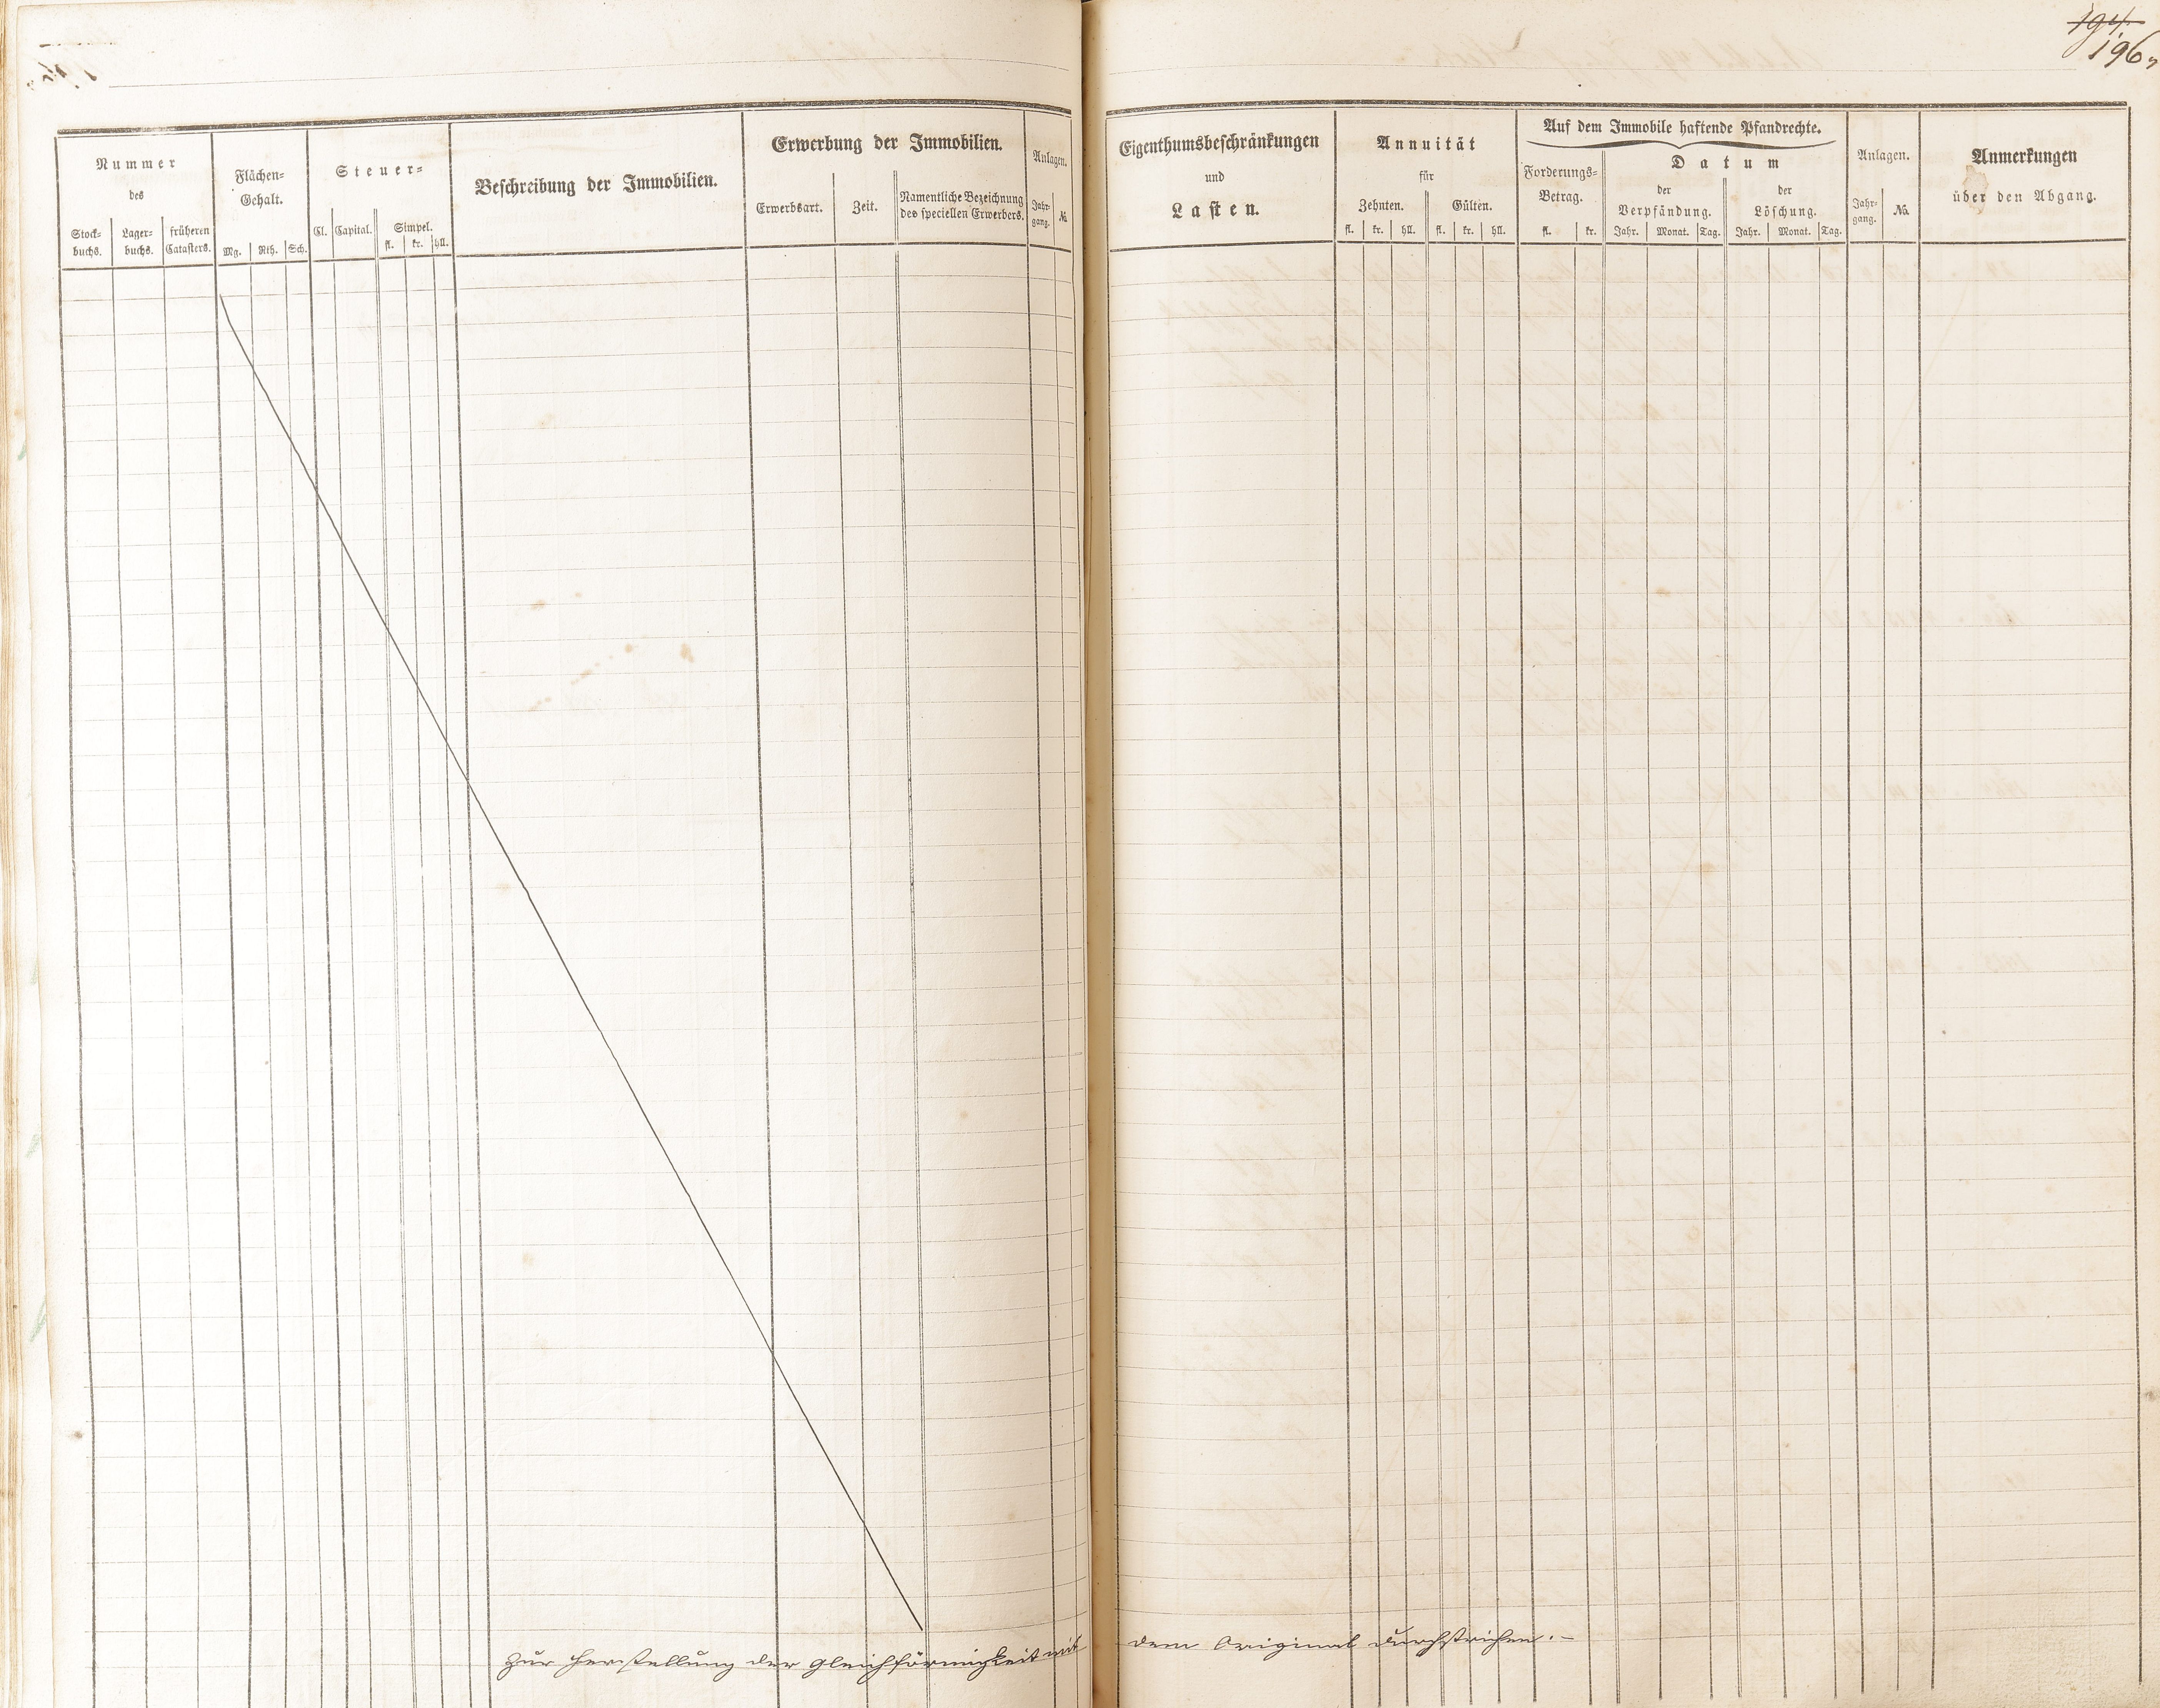 194.
196.
Nummer
des
Stock-
buchs.
Lager-
buchs.
früheren
Catasters.
Flächen-
Gehalt.
Mg. Rth. Sch.
Steuer-
Cl. Capital. Simpel.
fl. kr. hll.
Beschreibung der Immobilien.
Erwerbung der Immobilien.
Erwerbsart. Zeit.
Namentliche Bezeichnung
des speciellen Erwerbers.
Anlagen.
Jahr-
gang.
No.
Eigenthumsbeschränkungen
und
Lasten.
Annuität
für
Zehnten. Gülten.
fl. kr. hll. fl. kr. hll.
Auf dem Immobile haftende Pfandrechte.
Forderungs-
Betrag.
fl. kr.
Datum
der
Verpfändung.
Jahr. Monat. Tag.
der
Löschung.
Jahr. Monat. Tag.
Anlagen.
Jahr-
gang.
No.
Anmerkungen
über den Abgang.
Zur Herstellung der Gleichförmigkeit mit dem Original durchstrichen. –